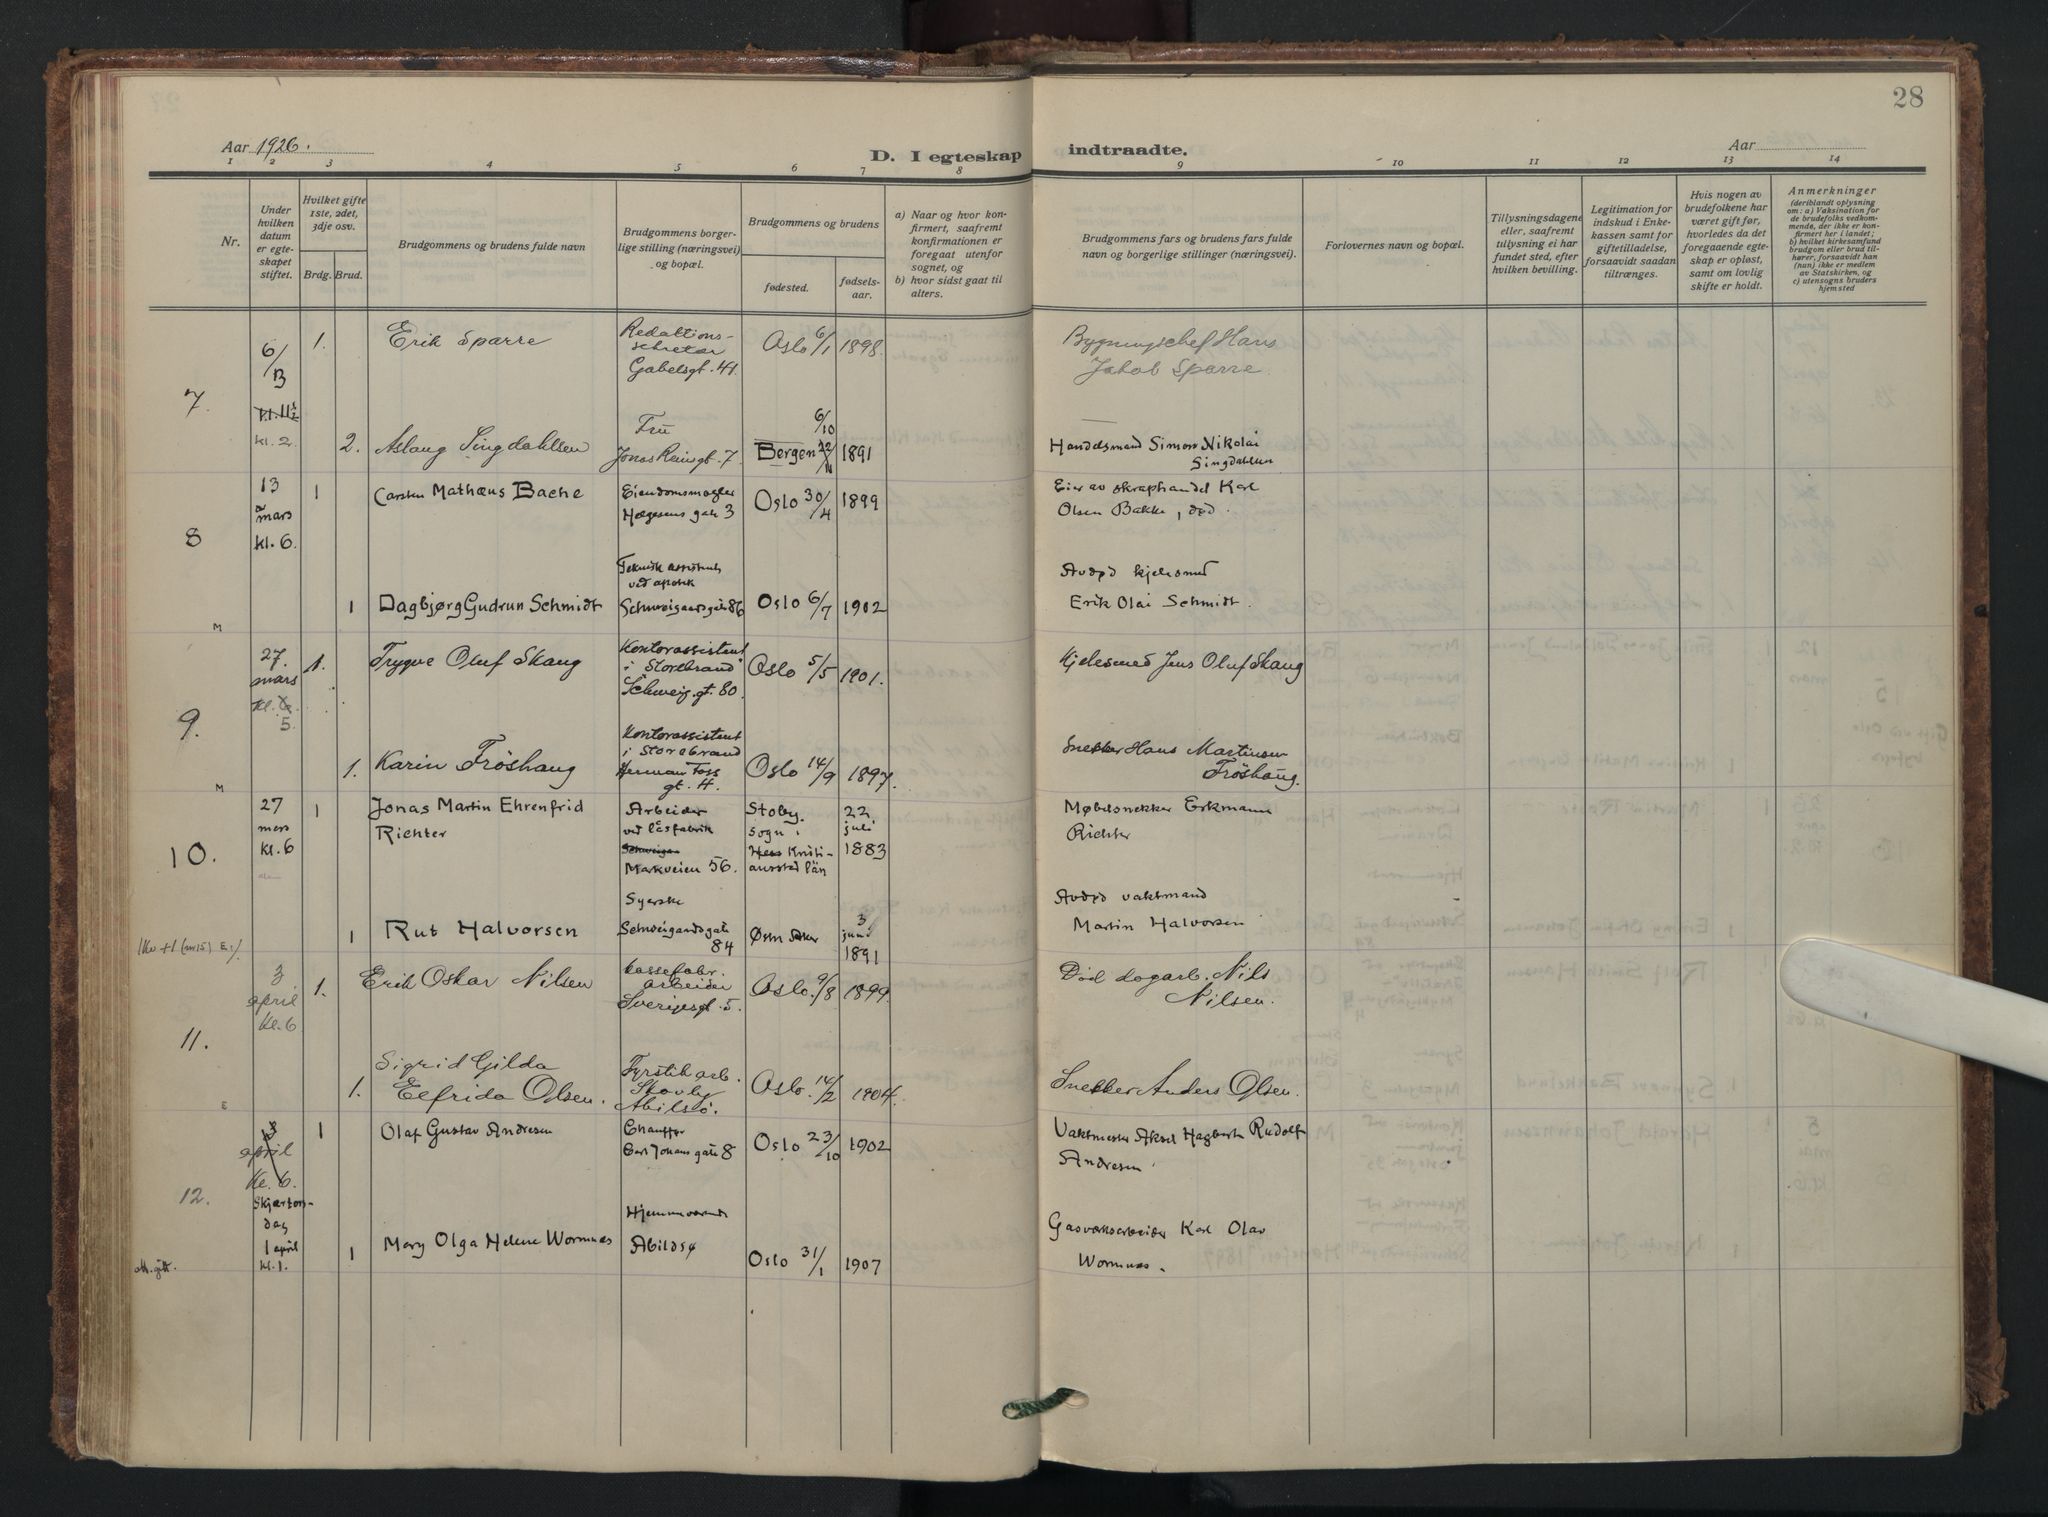 28
Aar 1926.
D. I egteskap indtraadte.
Aar
1 2 3 4 5 6 7 8 9 10 11 12 13 14
Nr.
Under
hvilken
datum
er egte-
skapet
stiftet.
Hvilket gifte
1ste, 2det,
3dje osv.
Brdg. Brud.
Brudgommens og brudens fulde navn
Brudgommens borger-
lige stilling (næringsvei)
og bopæl.
Brudgommens og brudens
fødested.
fødsels-
aar.
a) Naar og hvor kon-
firmert, saafremt
konfirmationen er
foregaat utenfor
sognet, og
b) hvor sidst gaat til
alters.
Brudgommens fars og brudens fars fulde
navn og borgerlige stillinger (næringsvei).
Forlovernes navn og bopæl.
Tillysningsdagene
eller, saafremt
tillysning ei har
fundet sted, efter
hvilken bevilling.
Legitimation for
indskud i Enke-
kassen samt for
giftetilladelse,
forsaavidt saadan
tiltrænges.
Hvis nogen av
brudefolkene har
været gift før,
hvorledes da det
foregaaende egte-
skap er opløst,
samt om lovlig
skifte er holdt.
Anmerkninger
(deriblandt oplysning
om: a) Vaksination for
de brudefolks vedkom-
mende, der ikke er kon-
firmert her i landet;
b) hvilket kirkesamfund
brudgom eller brud til-
hører, forsaavidt han
(hun) ikke er medlem
av Statskirken, og
c) utensogns bruders
hjemsted
7.
6/
13
kl. 11½
kl. 2.
1. Erik Sparre
Redaktions-
sekretær
Gabelsgt. 41.
Oslo 6/1 1898.
Bygningschef Hans
Jakob Sparre
2. Aslaug Singdahlsen
Fru
Jonas Reinsgt. 7
6/10
Bergen 1891
Handelsmand Simon Nikolai
Singdahlsen
8
13
mars
kl. 6.
1 Carsten Mathæus Bache
Eiendomsmægler
Hægesens gate 3
Oslo 30/4 1899
Eier av skraphandel Karl
Olsen Bakke, død.
1 Dagbjørg Gudrun Schmidt
Teknisk assistent
ved apotek
Schweigaardsgate 86
Oslo 6/7 1902
Avdød kjelesmed
Erik Olai Schmidt.
M
9.
27.
mars
kl.
5.
1. Trygve Oluf Skaug
Kontorassistent
i Storebrand
Schweig. gt. 80.
Oslo 5/5 1901.
Kjelesmed Jens Oluf Skaug
1. Karin Fröshaug
Kontorassistent
i Storebrand
Herman Foss
gt. 4.
Oslo 14/9 1897.
Snekker Hans Martinsen
Fröshaug.
M
10.
27
mars
kl. 6
1 Jonas Martin Ehrenfrid
Richter
Arbeider
ved låsfabrik
Markveien 56.
Stoby
sogn i
Kristi-
ansstad län
22
juli
1883
Møbelsnekker Erkmann
Richter
1 Rut Halvorsen
Syerske
Schweigaardsgate
84
Østre Aker
3
juni
1891
Avdød vaktmand
Martin Halvorsen
11.
3
april
Kl. 6
1. Erik Oskar Nilsen
Kassefabr.
arbeider
Sverigesgt. 5.
Oslo. 9/8 1899.
Død dagarb. Nils
Nilsen.
1. Sigrid Gilda
Elfrida Olsen.
Fyrstik arb.
Skovly
Abilsø.
Oslo. 14/2 1904.
Snekker Anders Olsen.
E
12.
april
Kl. 6.
Skjærtors-
dag
1 april
kl. 1.
1 Olaf Gustav Andresen
Chauffør
Carl Johans gate 8
Oslo 23/10 1902
Vaktmester Aksel Hagbarth Rudolf
Andresen
1 Mary Olga Helene Wormnæs
Hjemmeværende
Abildsø
Oslo 31/1 1907
Gasverksarbeider Karl Olav
Wormnæs.